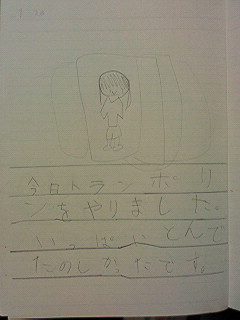 今日トランポリ
ンをやりました。
いっぱいとんで
たのしかたです。